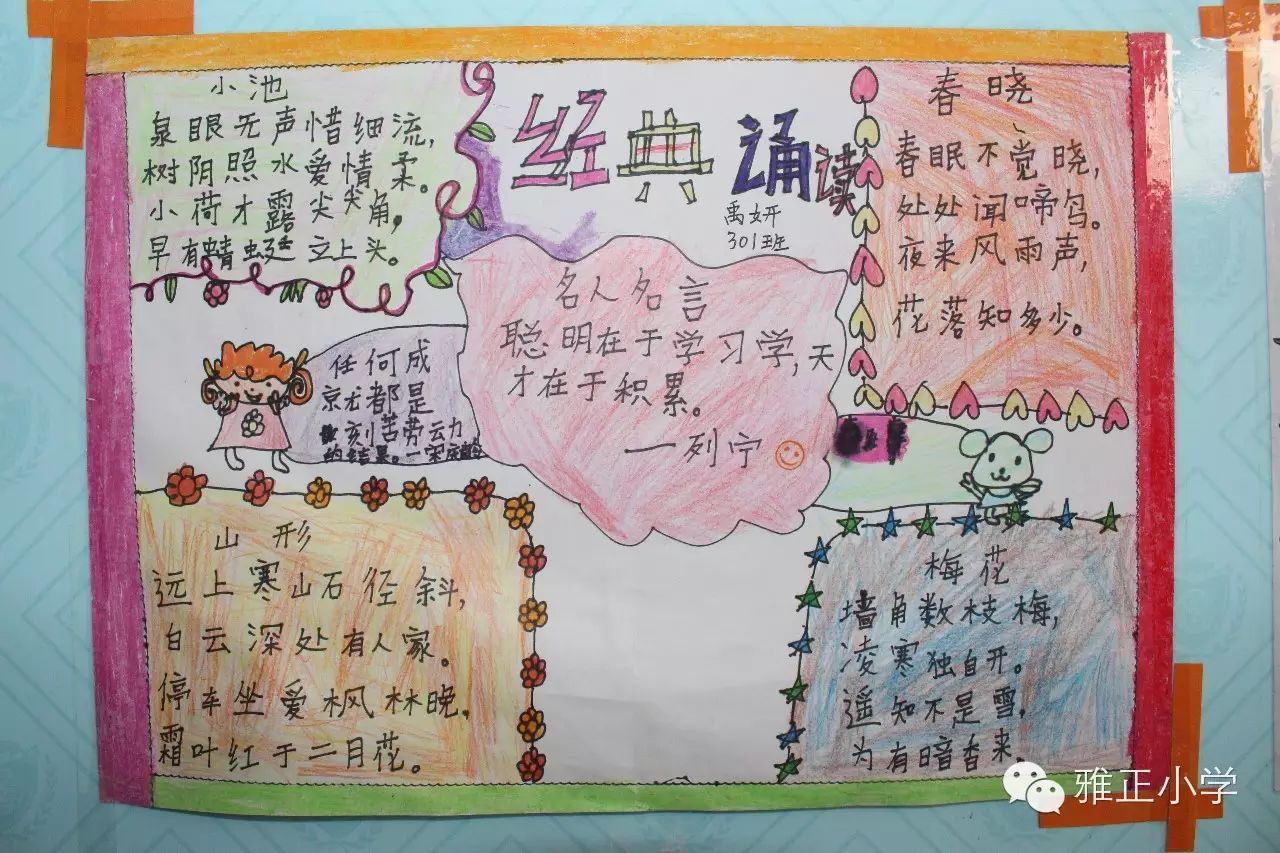 小池
泉眼无声惜细流,
树阴照水爱情柔。
小荷才露尖尖角,
早有蜻蜓立上头。
经典诵读
禹妍
301班
春晓
春眠不觉晓,
处处闻啼鸟。
夜来风雨声,
花落知多少。
名人名言
聪明在于学习学,天
才在于积累。
一列宁
任何成
就都是
刻苦劳动
的结果。一宋庆龄
山形
远上寒山石径斜,
白云深处有人家。
停车坐爱枫林晚,
霜叶红于二月花。
梅花
墙角数枝梅,
凌寒独自开。
遥知不是雪,
为有暗香来。
雅正小学